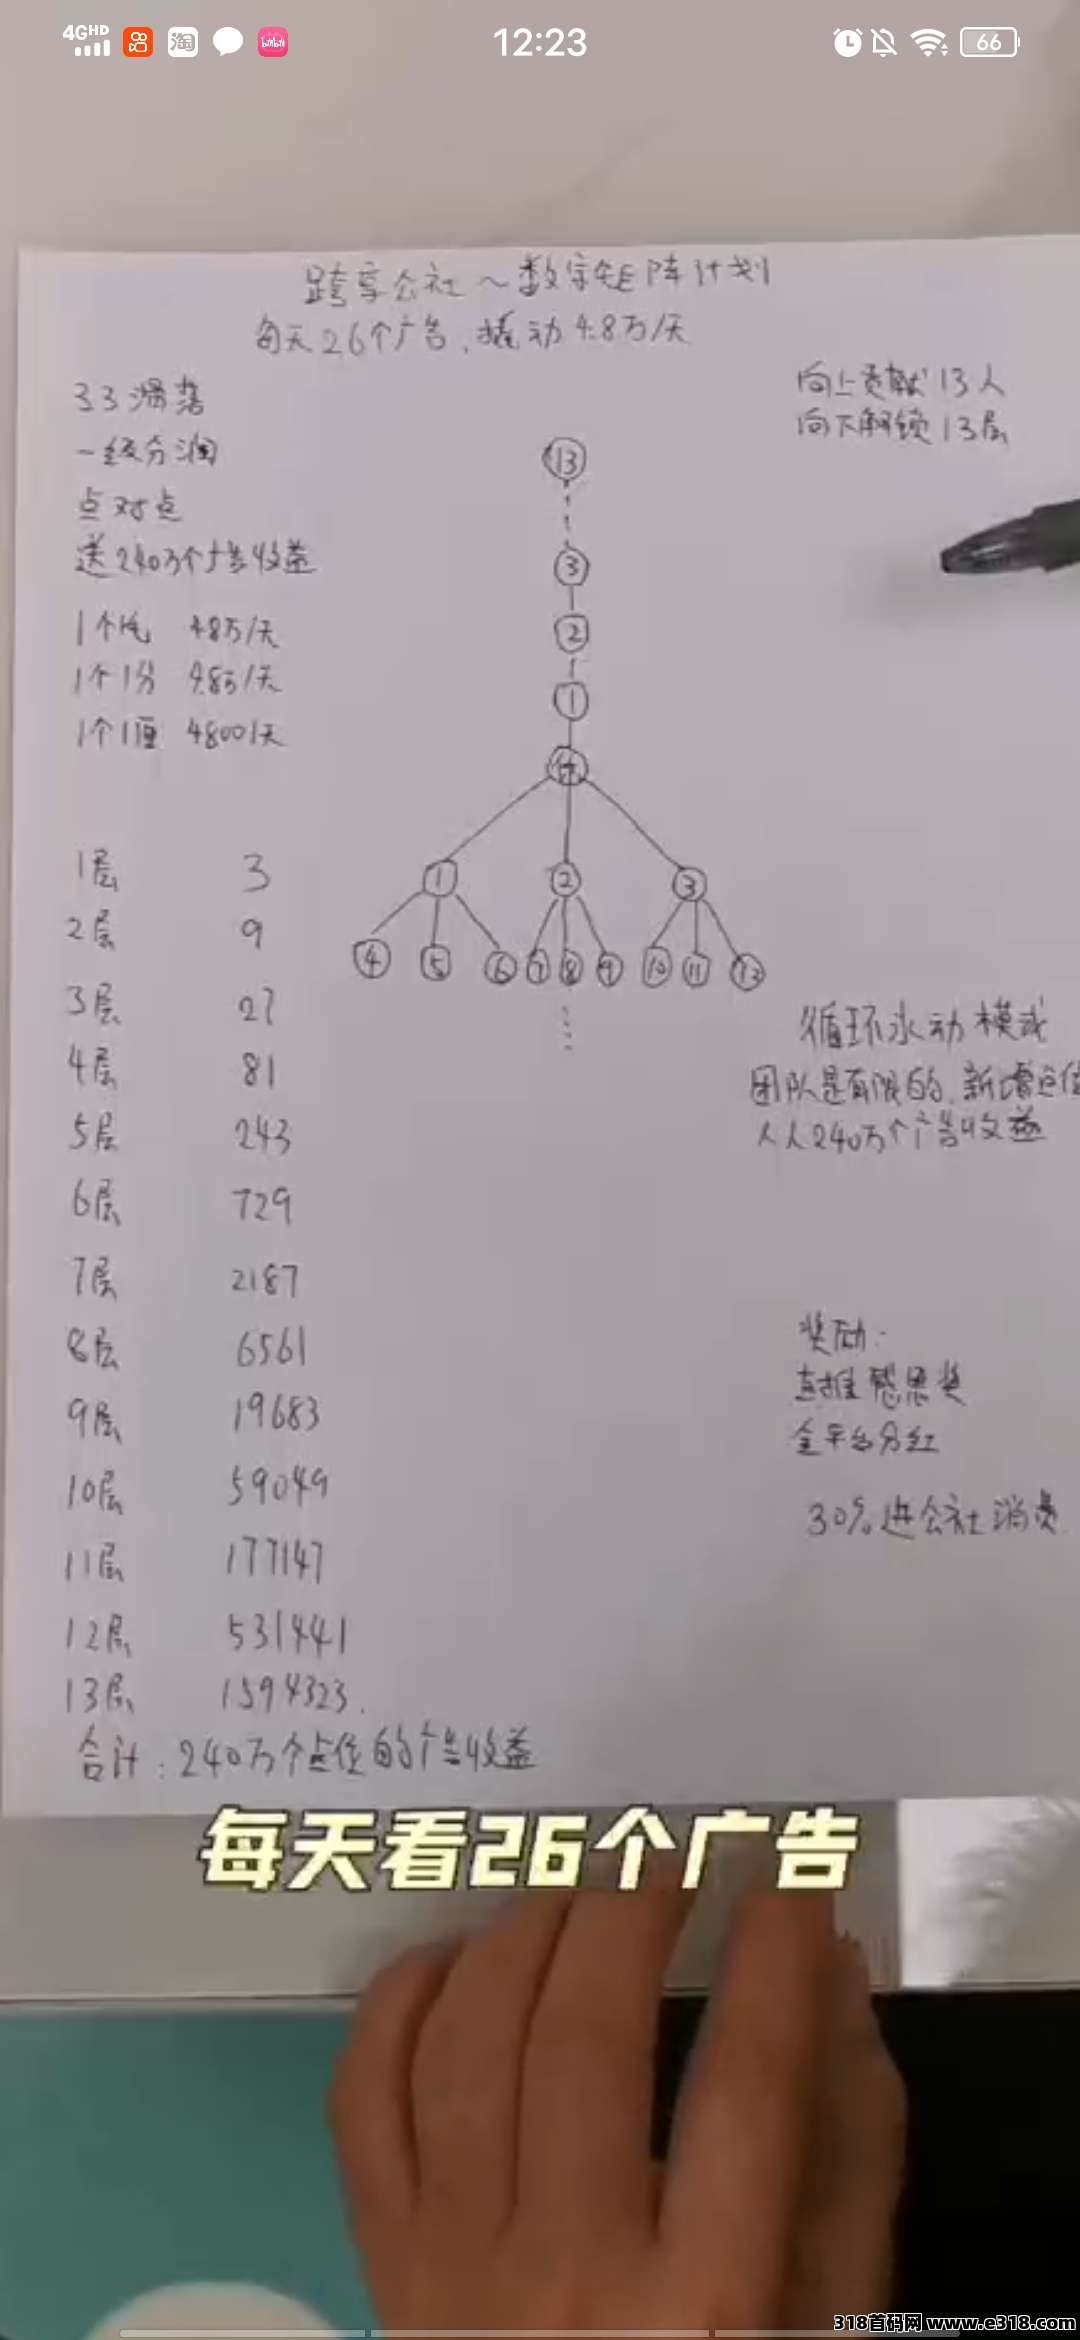 4GHD
淘
bilibili
12:23
66
跨享公社~数字矩阵计划
每天26个广告,撬动4.8万/天
33滑落
一级分润
点对点
送240万个广告收益
向上贡献13人
向下解锁13层
1个1毛 48万/天
1个1分 4.8万/天
1个1厘 4800/天
13
3
2
1
1
2
3
4
5
6
7
8
9
10
11
12
1层 3
2层 9
3层 27
4层 81
5层 243
6层 729
7层 2187
8层 6561
9层 19683
10层 59049
11层 177147
12层 531441
13层 1594323.
合计:240万个点位的广告收益
循环永动模式
团队是有限的,新增点位
人人240万个广告收益
奖励:
直推感恩奖
全平台分红
30%进公社消费
每天看26个广告
318首码网 www.e318.com